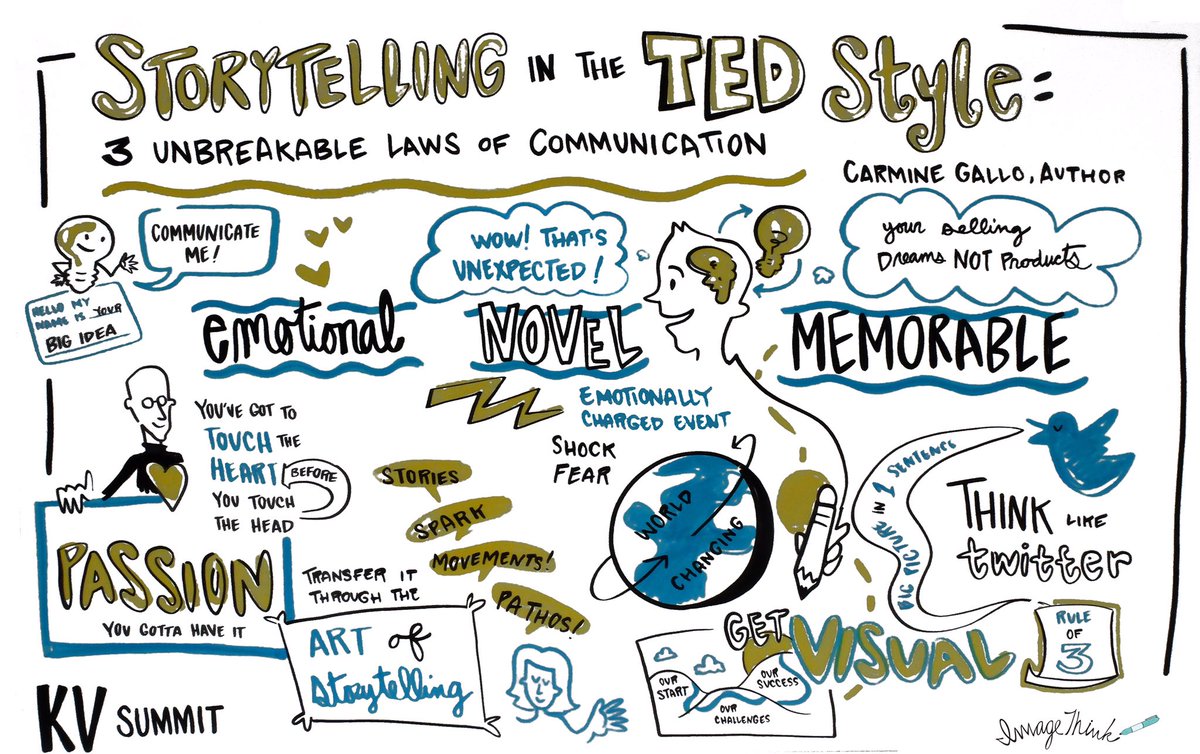 STORYTELLING IN THE TED Style:
3 UNBREAKABLE LAWS OF COMMUNICATION
CARMINE GALLO, AUTHOR
COMMUNICATE
ME!
HELLO MY
NAME IS YOUR
BIG IDEA
emotional
YOU'VE GOT TO
TOUCH THE
HEART BEFORE
YOU TOUCH
THE HEAD
PASSION
YOU GOTTA HAVE IT
TRANSFER IT
THROUGH THE
ART of
Storytelling
WOW! THAT'S
UNEXPECTED!
NOVEL
EMOTIONALLY
CHARGED EVENT
SHOCK
FEAR
STORIES
SPARK
MOVEMENTS!
PATHOS!
WORLD
CHANGING
your selling
Dreams NOT Products
MEMORABLE
BIG PICTURE IN 1 SENTENCE
THINK LIKE
twitter
GET
VISUAL
OUR
START
OUR
CHALLENGES
OUR
SUCCESS
RULE
OF
3
KV SUMMIT
ImageThink